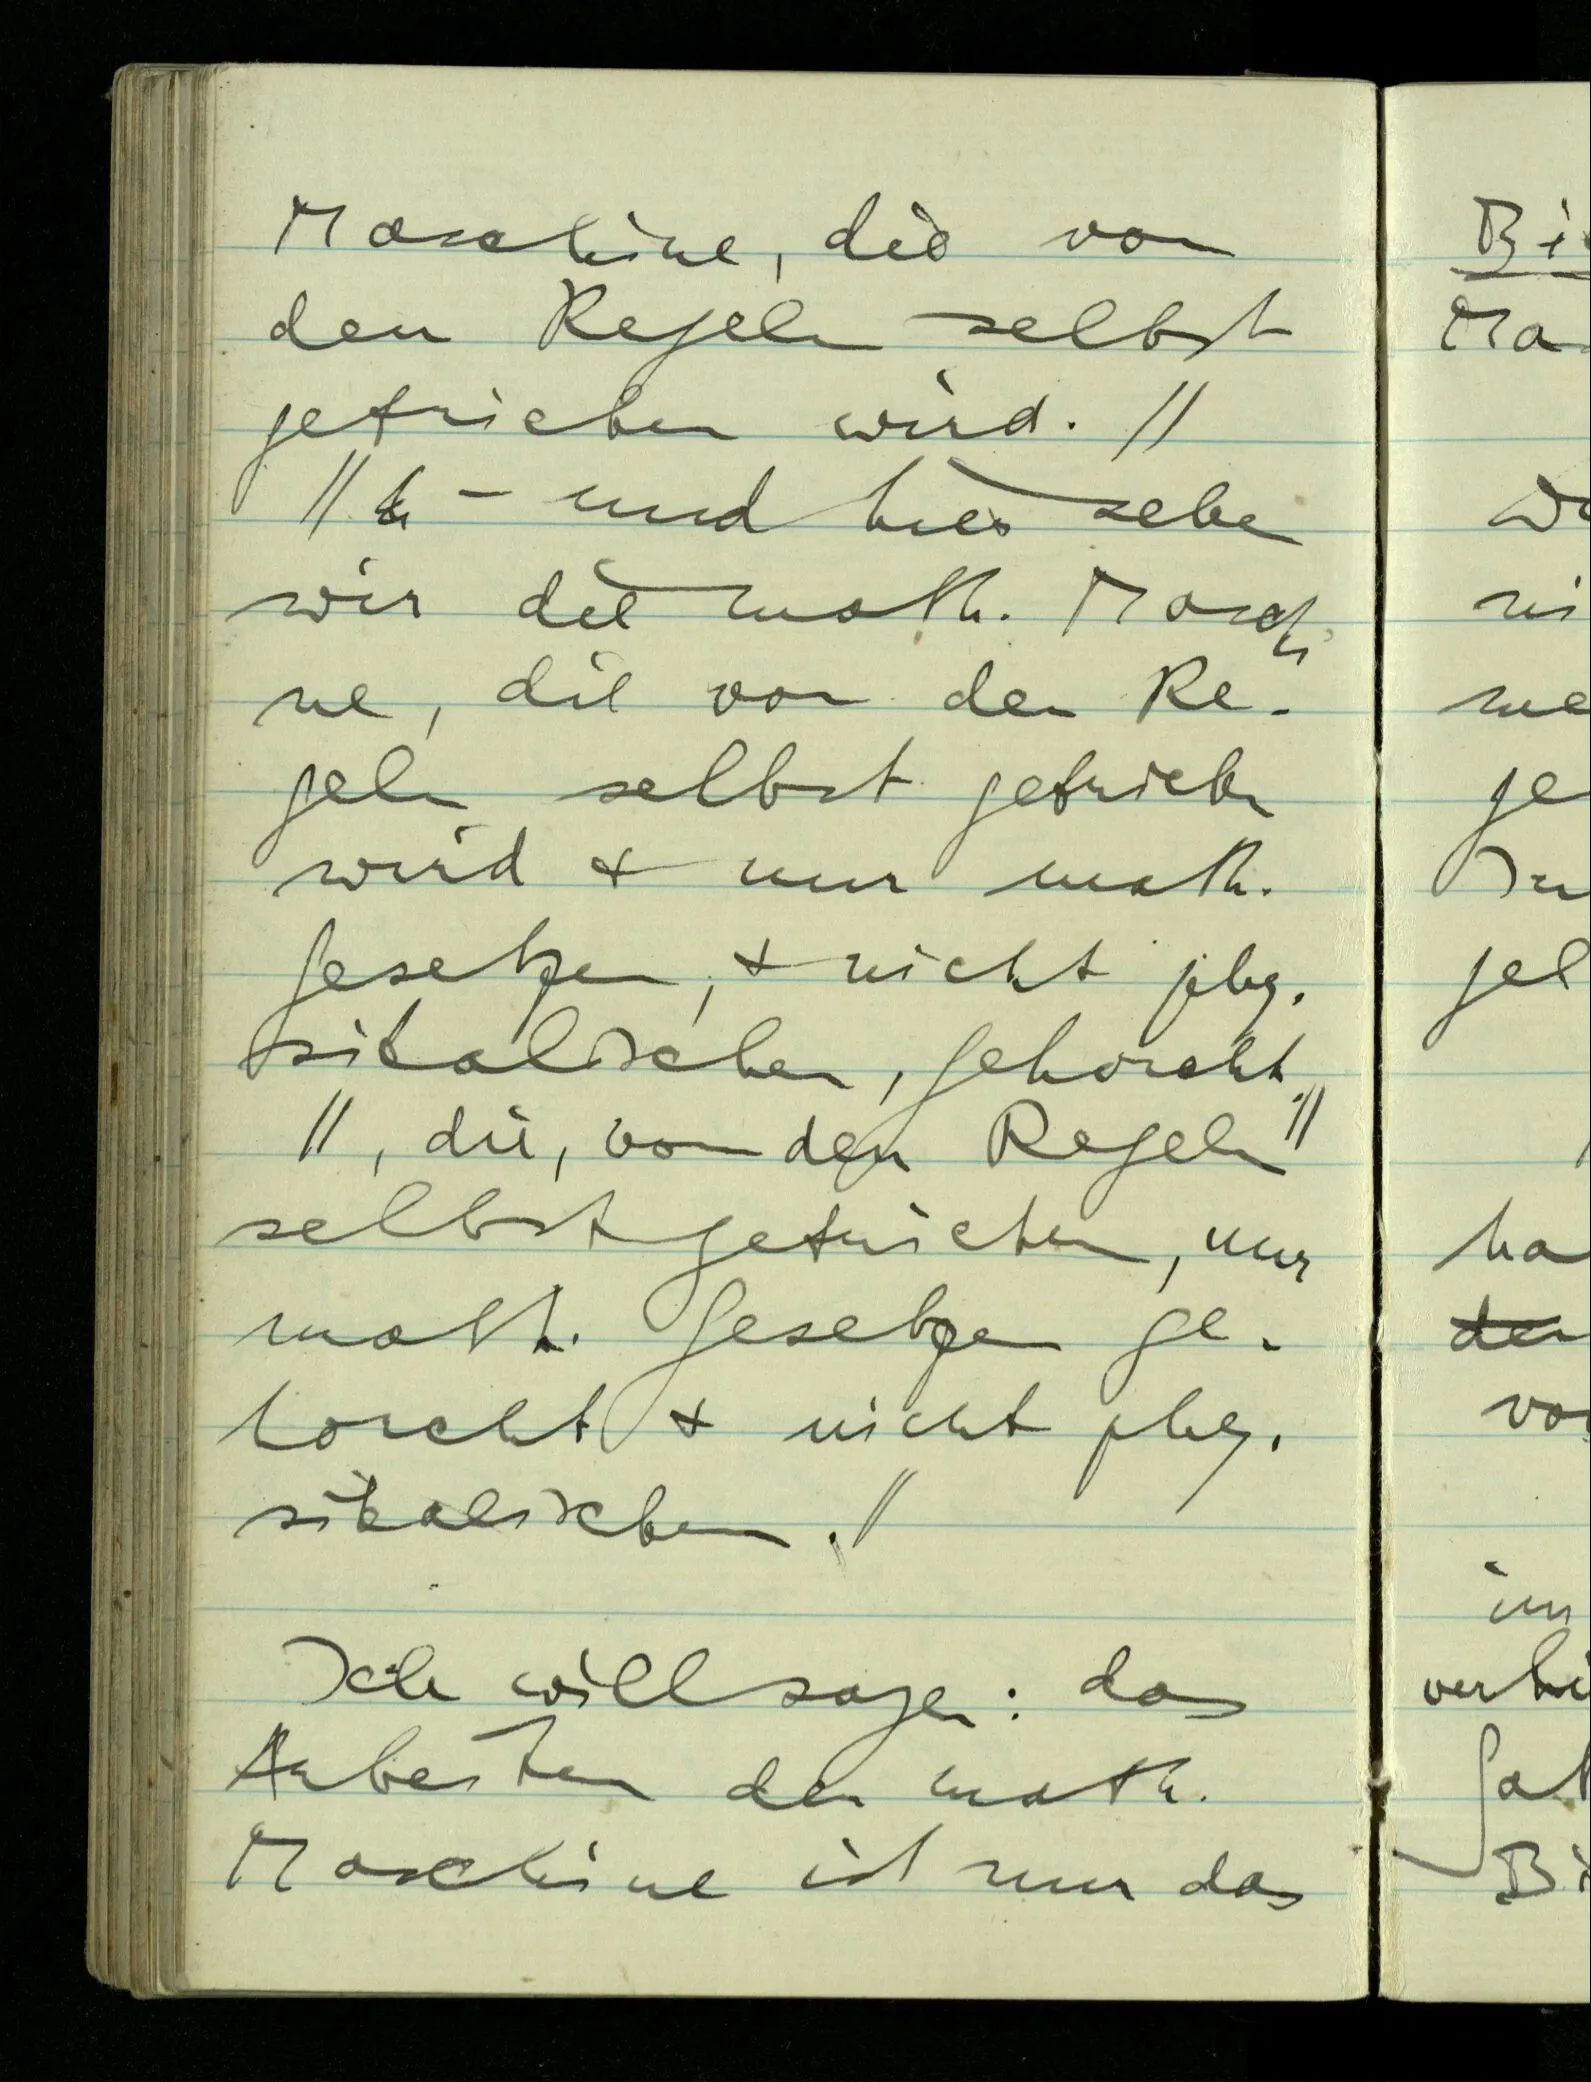 Maschine, die von
den Regeln selbst
getrieben wird. //
// – und hier sehen
wir die math. Maschi
ne, die von den Re-
geln selbst getrieben
wird & nur math.
Gesetzen, & nicht phy-
sikalischen, gehorcht
//, die, von den Regeln
selbst getrieben, nur
math. Gesetzen ge-
horcht & nicht phy-
sikalischen. //
Ich will sagen: das
Arbeiten der math.
Maschine ist nur das
Bi
Ma
ni
ge
In
gel
ha
der
vo
im
verhi
Bi